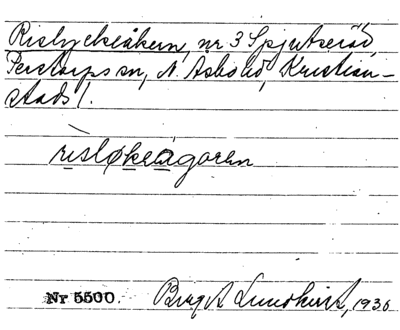 Rislyckeåkern, nr 3 Spjutseröd
Perstorps sn, N. Åsbo hd, Kristian-
stads l.
risløkeågoren
Nr 5500. Birgit Lundkvist, 1936